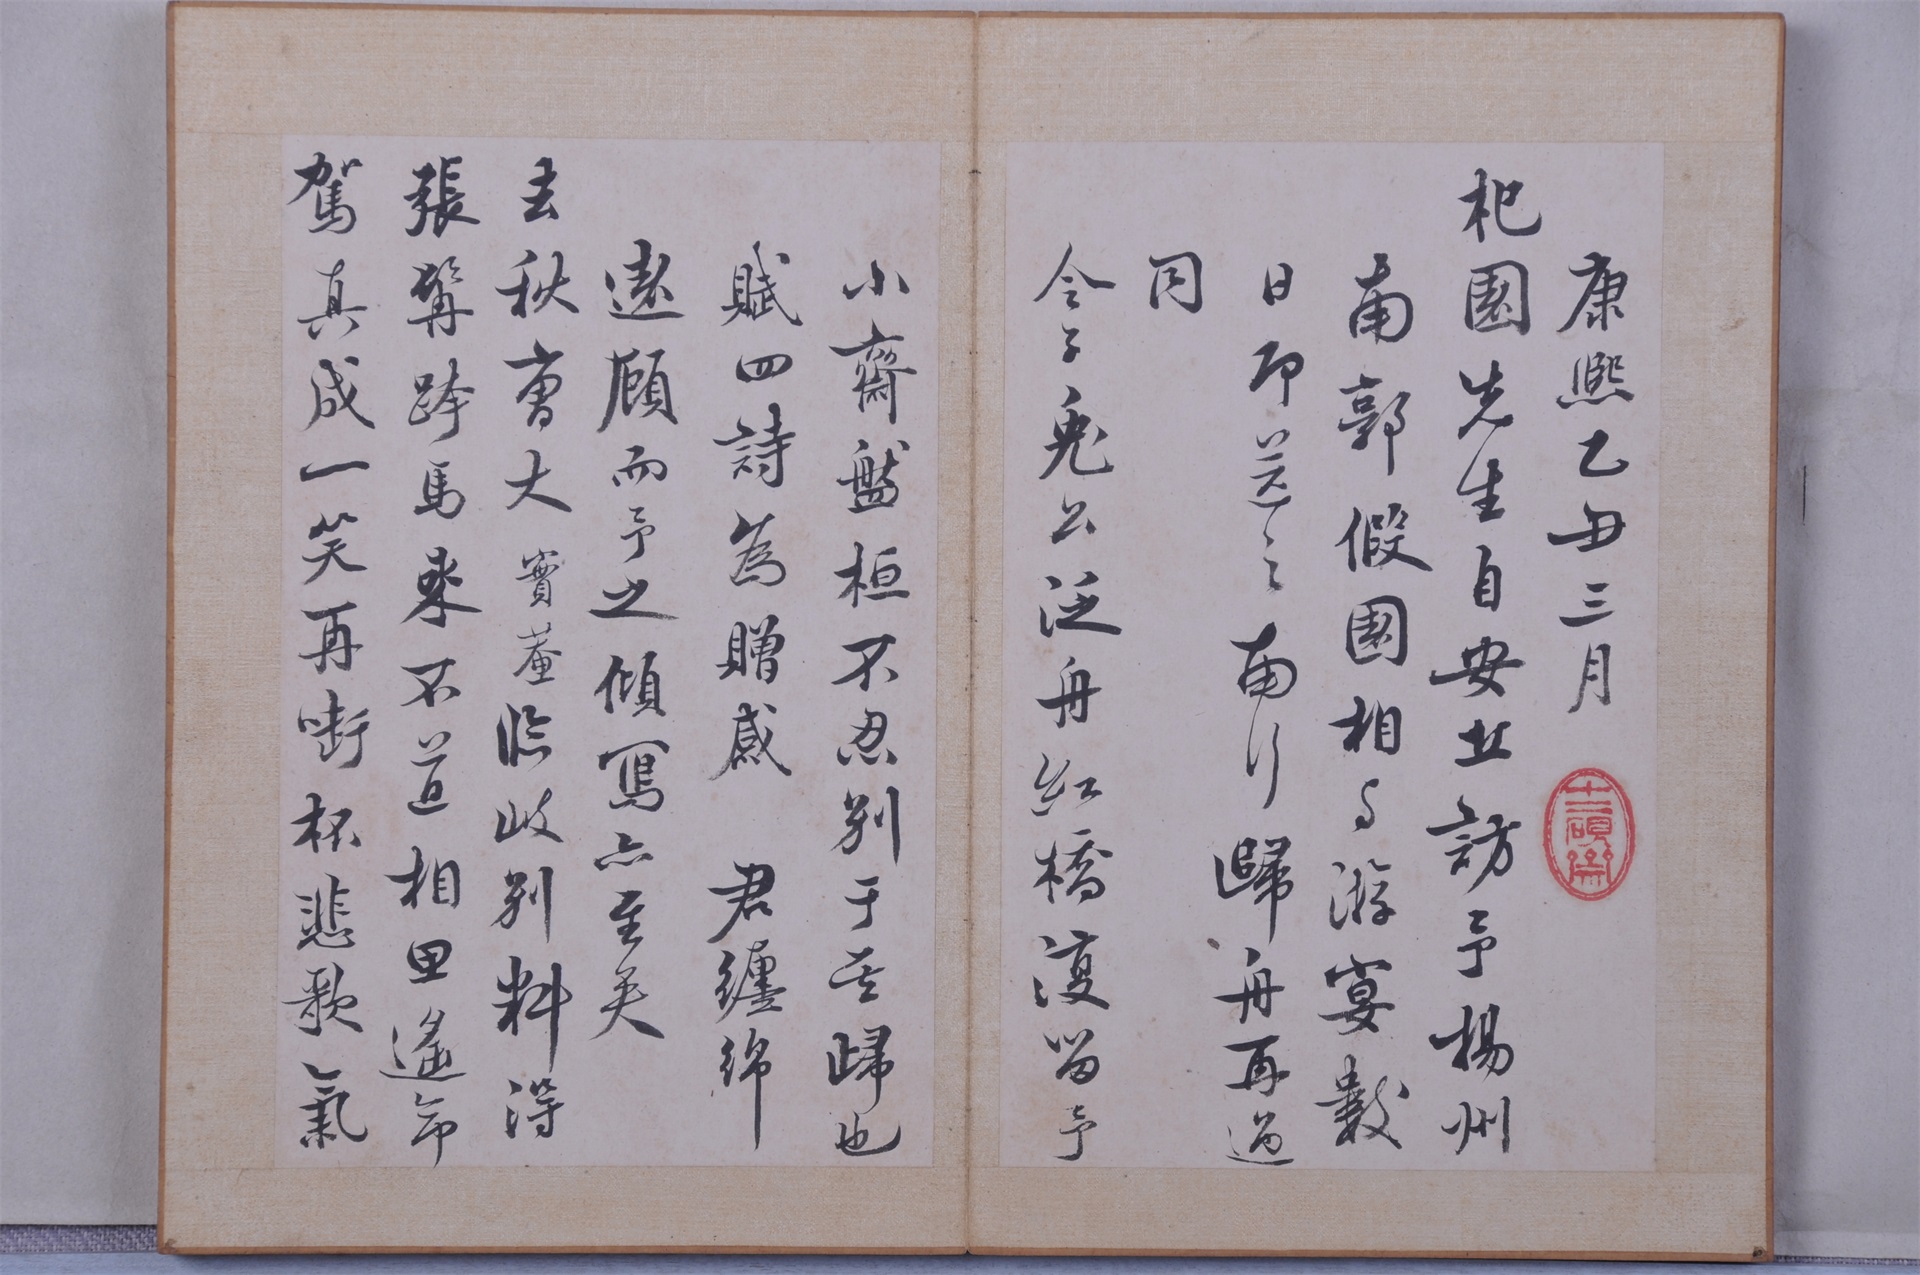 康熙乙丑三月
杞園先生自安丘訪予揚州
南郭假園相與游宴數
日即送之南行歸舟再過
同
令子兎公泛舟紅橋復留予
小齋盤桓不忍別于其歸也
賦四詩為贈感 君纏綿
遠顧而予之傾寫亦至矣
去秋曹大實菴臨岐別料得
張髯跨馬來不道相思遙命
駕真成一笑再銜杯悲歌氣